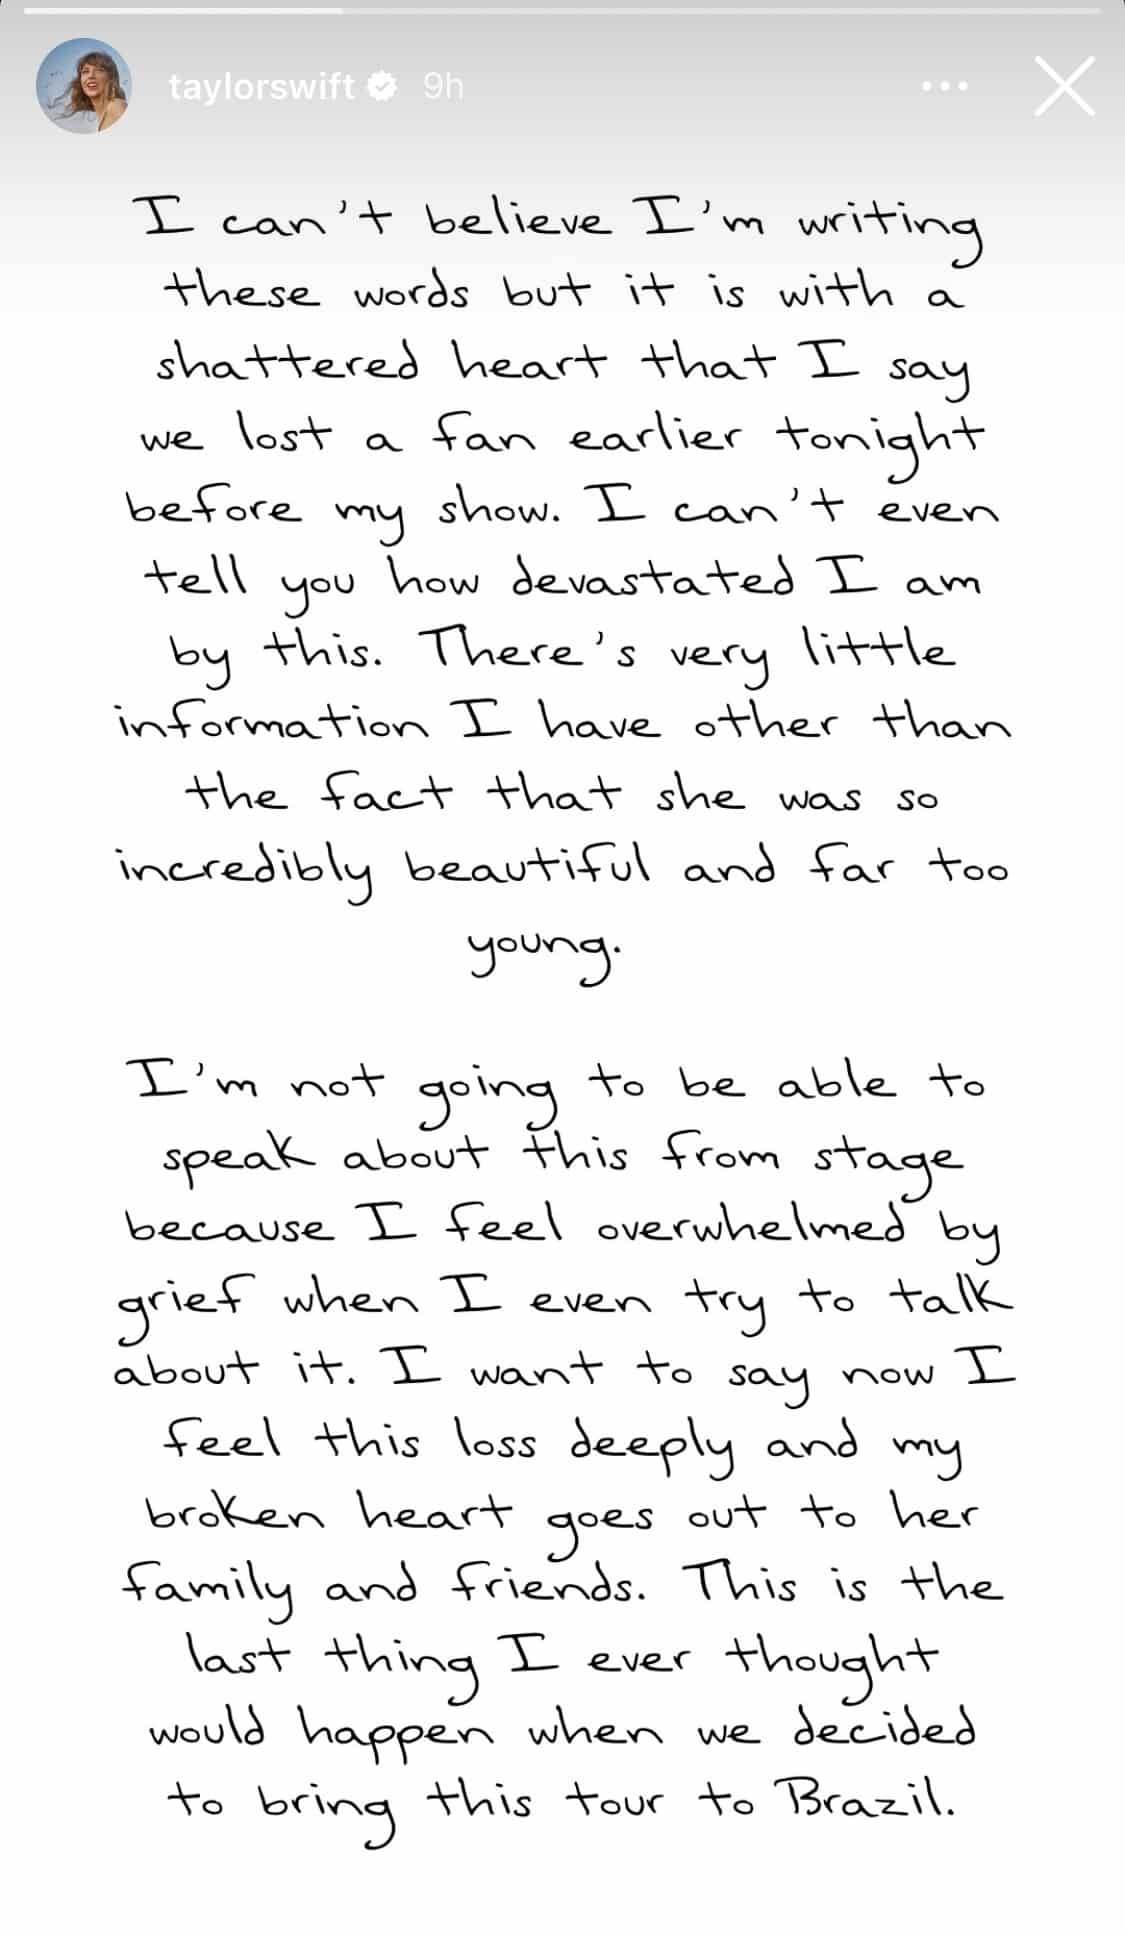 taylorswift 9h
I can't believe I'm writing
these words but it is with a
shattered heart that I say
we lost a fan earlier tonight
before my show. I can't even
tell you how devastated I am
by this. There's very little
information I have other than
the fact that she was so
incredibly beautiful and far too
young.
I'm not going to be able to
speak about this from stage
because I feel overwhelmed by
grief when I even try to talk
about it. I want to say now I
feel this loss deeply and my
broken heart goes out to her
family and friends. This is the
last thing I ever thought
would happen when we decided
to bring this tour to Brazil.